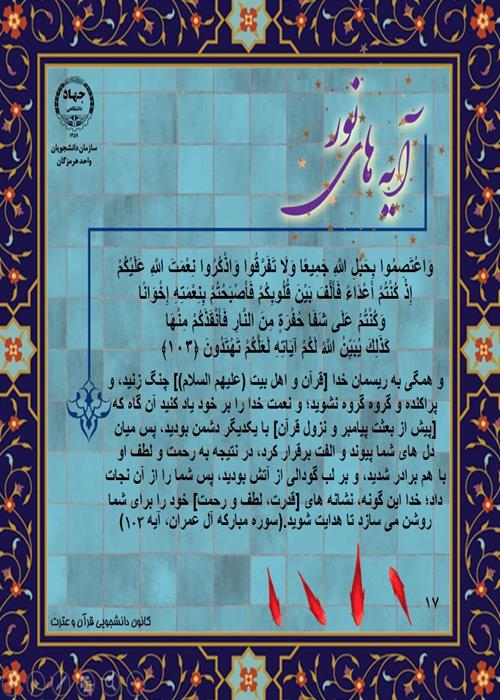 جهاد
دانشگاهی
۱۳۵۹
سازمان دانشجویان
واحد هرمزگان
آیه های نور
وَاعْتَصِمُوا بِحَبْلِ اللَّهِ جَمِيعًا وَلَا تَفَرَّقُوا وَاذْكُرُوا نِعْمَتَ اللَّهِ عَلَيْكُمْ
إِذْ كُنْتُمْ أَعْدَاءً فَأَلَّفَ بَيْنَ قُلُوبِكُمْ فَأَصْبَحْتُمْ بِنِعْمَتِهِ إِخْوَانًا
وَكُنْتُمْ عَلَى شَفَا حُفْرَةٍ مِنَ النَّارِ فَأَنْقَذَكُمْ مِنْهَا
كَذَلِكَ يُبَيِّنُ اللَّهُ لَكُمْ آيَاتِهِ لَعَلَّكُمْ تَهْتَدُونَ ﴿۱۰۳﴾
و همگی به ریسمان خدا [قرآن و اهل بیت (علیهم السلام)] چنگ زنید، و
پراکنده و گروه گروه نشوید؛ و نعمت خدا را بر خود یاد کنید آن گاه که
[پیش از بعثت پیامبر و نزول قرآن] با یکدیگر دشمن بودید، پس میان
دل های شما پیوند و الفت برقرار کرد، در نتیجه به رحمت و لطف او
با هم برادر شدید، و بر لب گودالی از آتش بودید، پس شما را از آن نجات
داد؛ خدا این گونه، نشانه های [قدرت، لطف و رحمت] خود را برای شما
روشن می سازد تا هدایت شوید.(سوره مبارکه آل عمران، آیه ۱۰۳)
۱۷
کانون دانشجویی قرآن و عترت